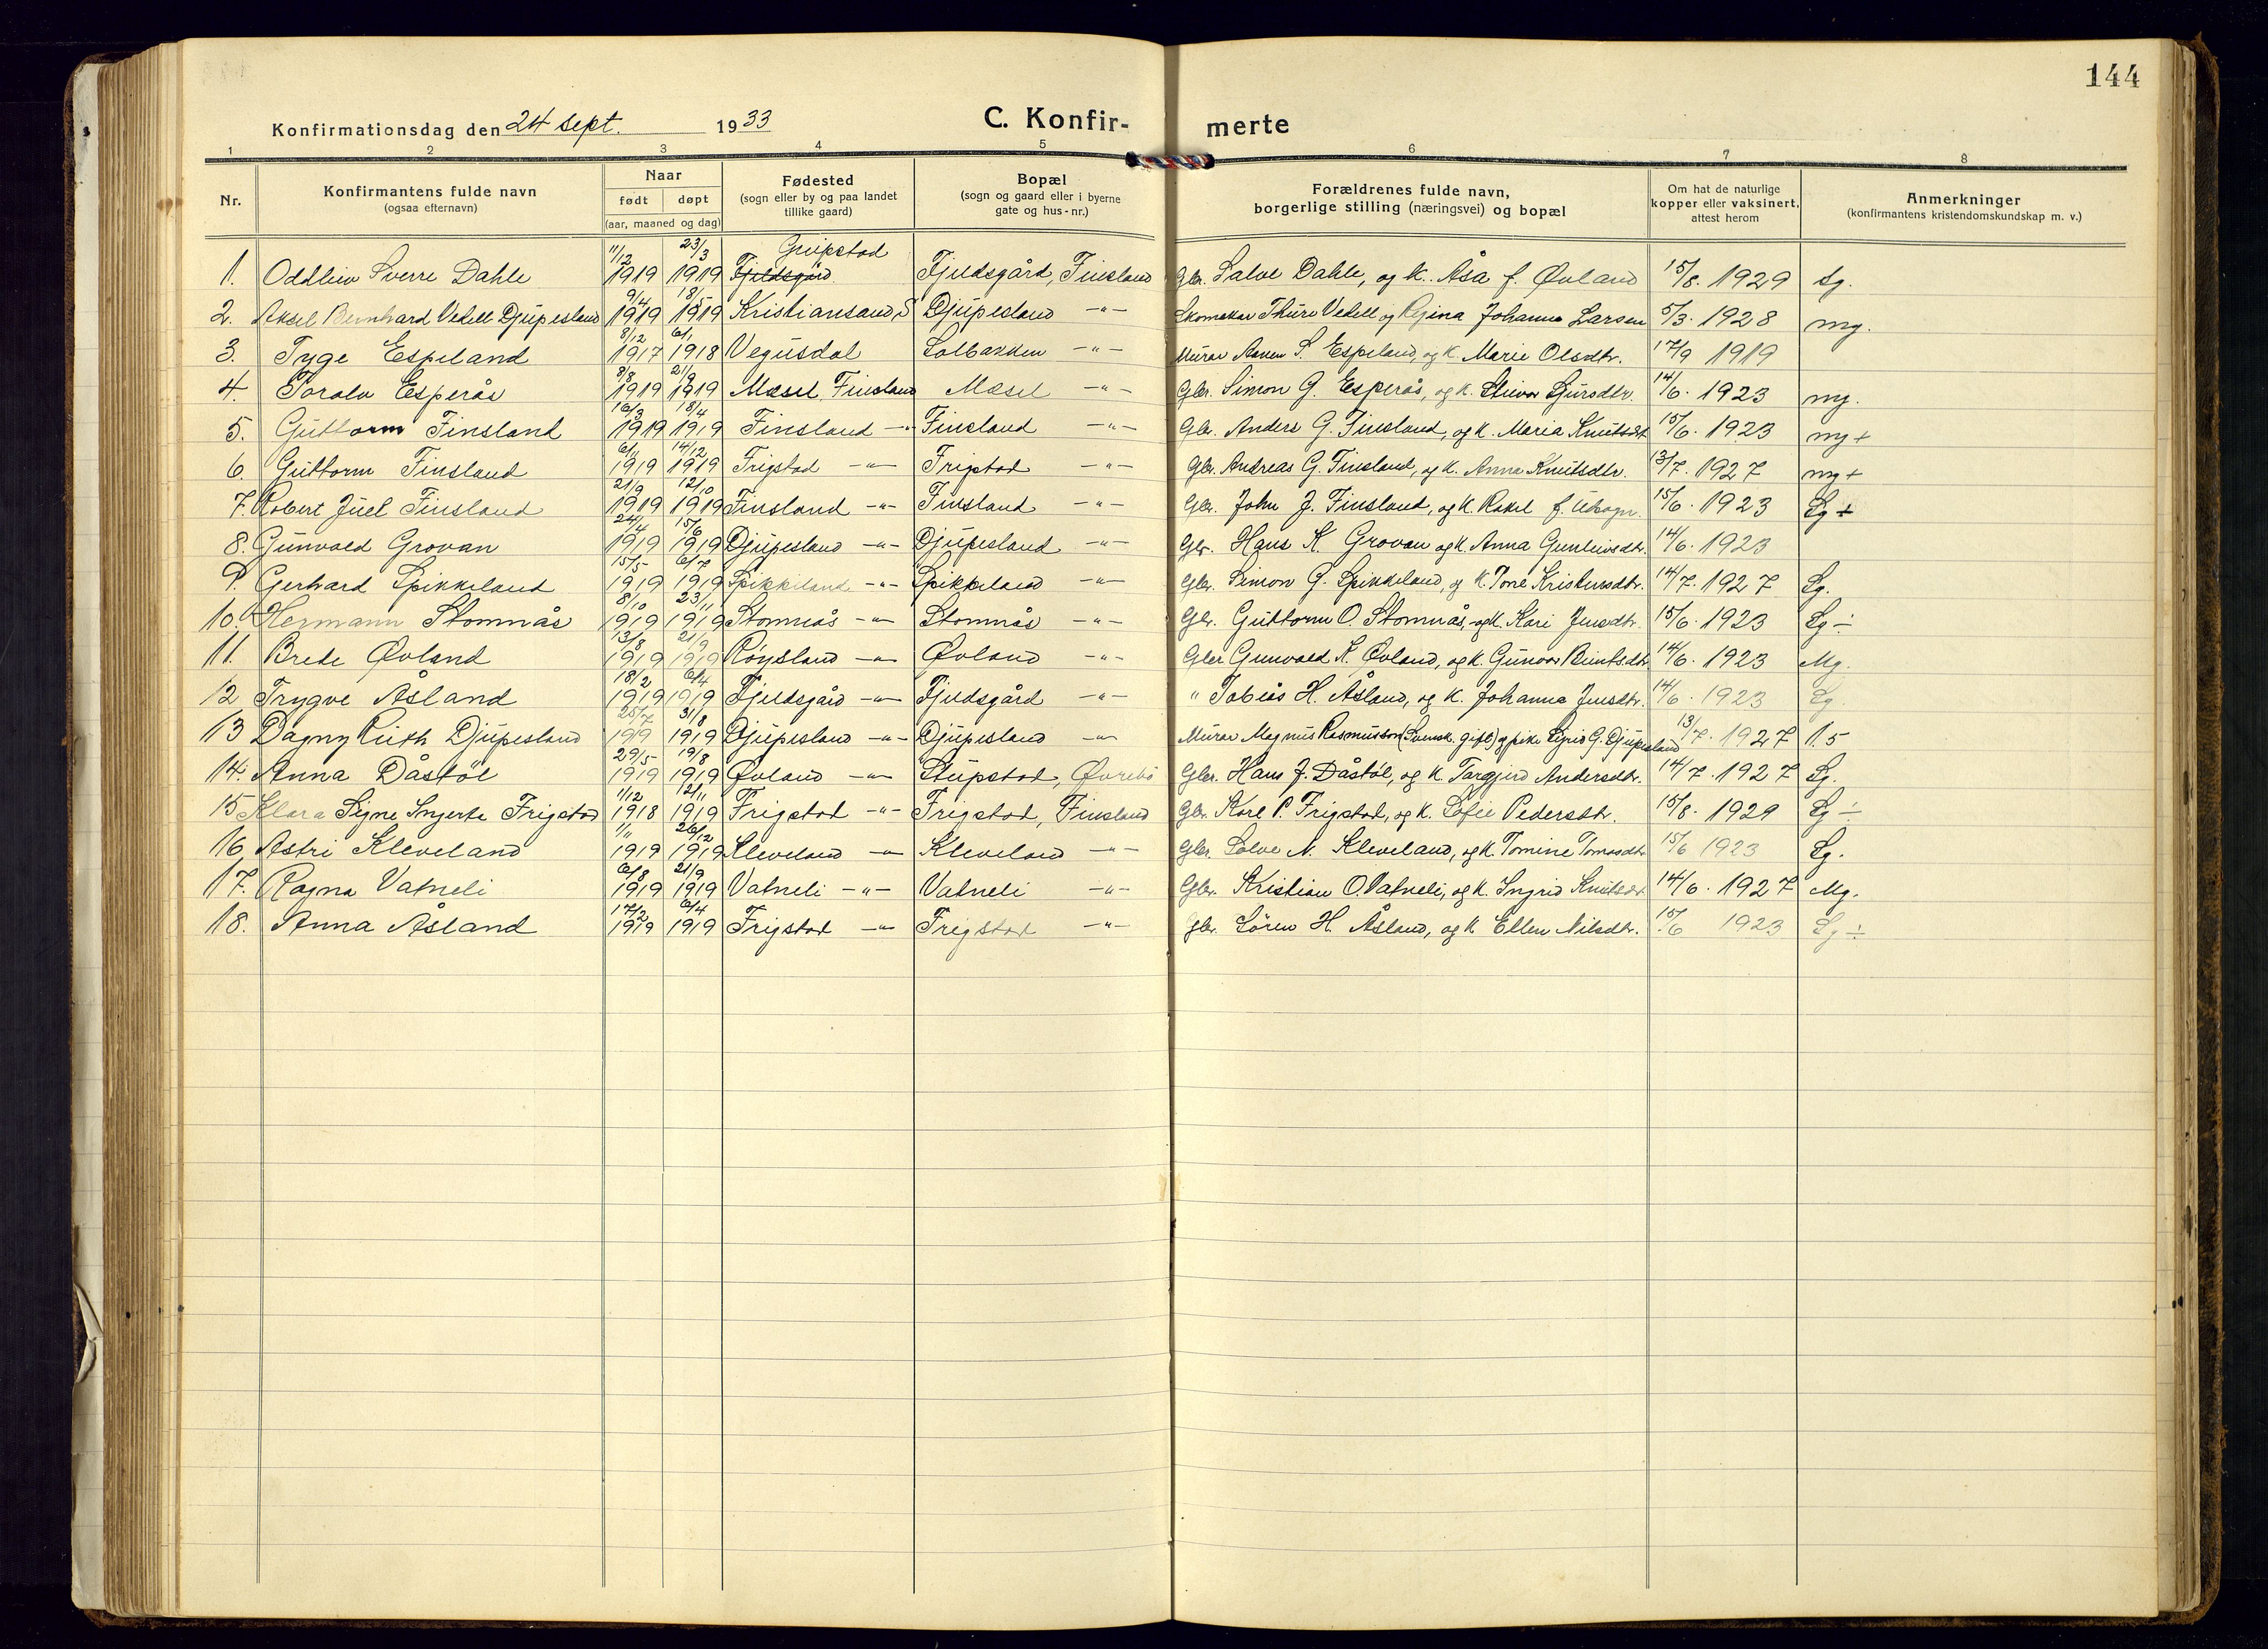 144
Konfirmationsdag den 24 sept. 1933
C. Konfir-
merte
1 2 3 4 5 6 7 8
Nr.
Konfirmantens fulde navn
(ogsaa efternavn)
Naar
født døpt
(aar, maaned og dag)
Fødested
(sogn eller by og paa landet
tillike gaard)
Bopæl
(sogn og gaard eller i byerne
gate og hus-nr.)
Forældrenes fulde navn,
borgerlige stilling (næringsvei) og bopæl
Om hat de naturlige
kopper eller vaksinert,
attest herom
Anmerkninger
(konfirmantens kristendomskundskap m. v.)
1. Oddleiv Sverre Dahle 11/12 1919 23/3 1919 Gripstad Fjeldsgård Fjeldsgård, Finsland Gbr. Salve Dahle, og k. Åsa f. Øvland 15/8. 1929 Sg.
2. Aksel Bernhard Vetell Djupesland 9/4 1919 18/5 1919 Kristiansand S Djupesland -"- Skomaker Thure Vetell og Regina Johanna Larsen 5/3. 1928 mg.
3. Tyge Espeland 8/12 1917 6/1 1918 Vegusdal Solbakken -"- Murar Aanen S. Espeland, og k. Marie Olsdtr. 17/9 1919
4. Toralv Esperås 8/8 1919 21/9 1919 Mæsel, Finsland Mæsel -"- Gbr. Simon G. Esperås, og k. Sjursdtr. 14/6. 1923 mg.
5. Guttorm Finsland 16/3 1919 18/4 1919 Finsland -"- Finsland -"- Gbr. Anders G. Finsland, og k. Maria Knutsdt 15/6. 1923 mg +
6. Guttorm Finsland 6/11 1919 14/12 1919 Frigstad -"- Frigstad -"- Gbr. Andreas G. Finsland, og k. Anna Knutsdtr. 13/7. 1927 mg +
7. Robert Juel Finsland 21/9 1919 12/10 1919 Finsland -"- Finsland -"- Gbr. John J. Finsland, og k. Rakel f. 15/6. 1923 Sg +
8. Gunvald Grovan 24/4 1919 15/6 1919 Djupesland -"- Djupesland -"- Gbr. Hans K. Grovan og k. Anna Gunleivsdtr. 14/6. 1923
9. Gerhard Spikkeland 15/5 1919 6/7 1919 Spikkeland -"- Spikkeland -"- Gbr. Simon G. Spikkeland, og k. Tone Kristensdtr. 14/7. 1927 Sg.
10. Hermann Stomnås 8/10 1919 23/11 1919 Stomnås -"- Stomnås -"- Gbr. Guttorm O. Stomnås, og k. Kari Jensdtr. 15/6. 1923 Sg ÷
11. Brede Øvland 13/8 1919 21/9 1919 Røysland -"- Øvland -"- Gbr Gunvald K. Øvland, og k. Gunvor Berntsdtr 14/6. 1923 Mg.
12 Trygve Åsland 18/2 1919 6/4 1919 Fjeldsgård -"- Fjeldsgård -"- " Tobias H. Åsland, og k. Johanna Jensdtr. 14/6. 1923 Sg.
13 Dagny Ruth Djupesland 25/7 1919 31/8 1919 Djupesland -"- Djupesland -"- Murar Magnus Rasmusson (Svensk. gift) og pike Sigrid G. Djupesland 13/7. 1927 1.5
14. Anna Dåstøl 29/5 1919 19/8 1919 Øvland -"- Stupstad, Øvrebø Gbr. Hans J. Dåstøl, og k. Targjerd Andersdtr. 14/7. 1927 Sg.
15 Klara Signe Ingerte Frigstad 1/12 1918 12/11 1919 Frigstad -"- Frigstad, Finsland Gbr. Karl P. Frigstad, og k. Sofie Pedersdtr. 15/8. 1929 Sg ÷
16 Astri Kleveland 1/11 1919 26/12 1919 Kleveland -"- Kleveland -"- Gbr. Salve N. Kleveland, og k. Tomine Tomasdtr 15/6 1923 Sg.
17. Ragna Vatneli 6/8 1919 21/9 1919 Vatneli -"- Vatneli -"- Gbr. Kristian O. Vatneli, og k. Ingrid Knutsdtr 14/6. 1927 Mg.
18. Anna Åsland 17/2 1919 6/4 1919 Frigstad -"- Frigstad -"- Gbr. Søren H. Åsland, og k Ellen Nilsdtr. 15/6 1923 Sg ÷